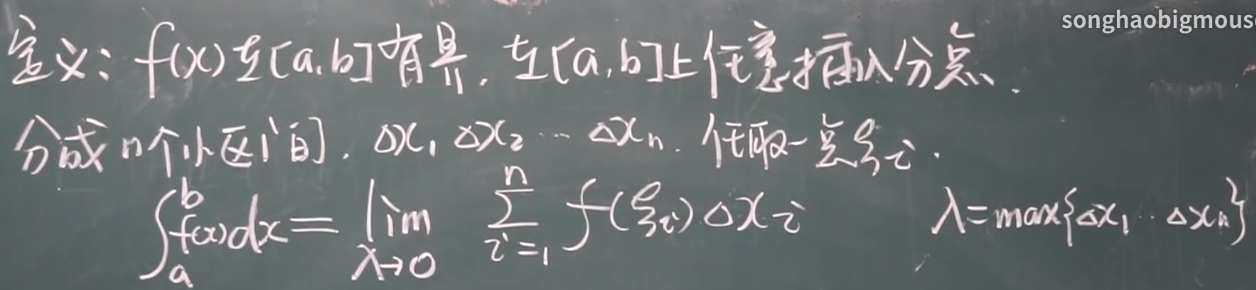 songhaobigmous
定义: f(x)在[a,b]有界. 在[a,b]上任意插入分点.
分成n个小区间. Δx₁ Δx₂ … Δxₙ. 任取一点ξᵢ.
∫ₐᵇ f(x)dx = lim_{λ→0} ∑_{i=1}^{n} f(ξᵢ)Δxᵢ λ=max{Δx₁ … Δxₙ}